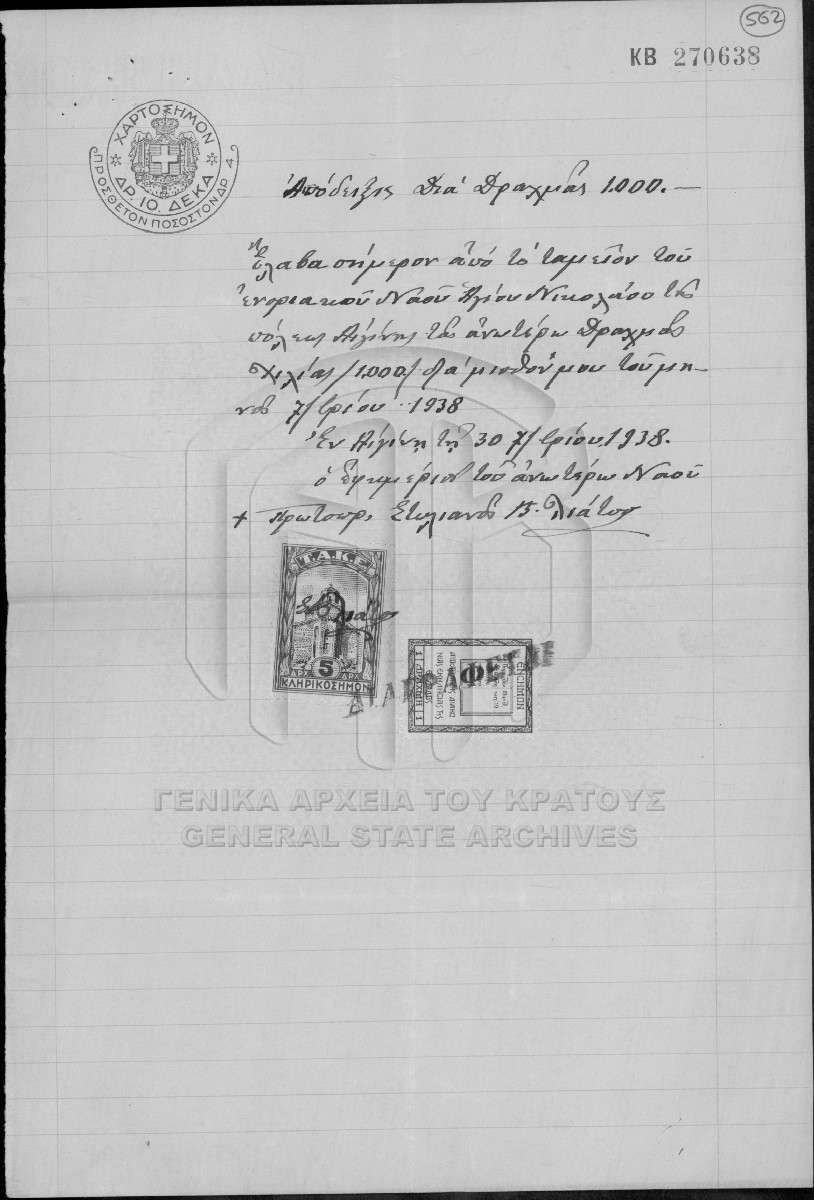 562
ΚΒ 270638
ΧΑΡΤΟΣΗΜΟΝ
ΔΡ. 10. ΔΕΚΑ
ΠΡΟΣΘΕΤΟΝ ΠΟΣΟΣΤΟΝ ΔΡ. 4.
Ἀπόδειξις Διά Δραχμάς 1.000.—
Ἔλαβα σήμερον ἀπό τό ταμεῖον τοῦ
ἐνοριακοῦ Ναοῦ Ἁγίου Νικολάου τῆς
πόλεως Αἰγίνης τάς ἀνωτέρω Δραχμάς
χιλίας /1000/ διά μισθόν μου τοῦ μη-
νός 7/βρίου 1938
Ἐν Αἰγίνῃ τῇ 30 7/βρίου 1938.
ὁ Ἐφημέριος τοῦ ἀνωτέρω Ναοῦ
+ Πρωτοπρ. Στυλιανός Β. Λιάτος
Τ.Α.Κ.Ε
ΔΡΧ 5 ΔΡΧ
ΚΛΗΡΙΚΟΣΗΜΟΝ
ΕΝΣΗΜΟΝ
1 ΔΡΑΧΜΗ 1
ΓΕΝΙΚΑ ΑΡΧΕΙΑ ΤΟΥ ΚΡΑΤΟΥΣ
GENERAL STATE ARCHIVES